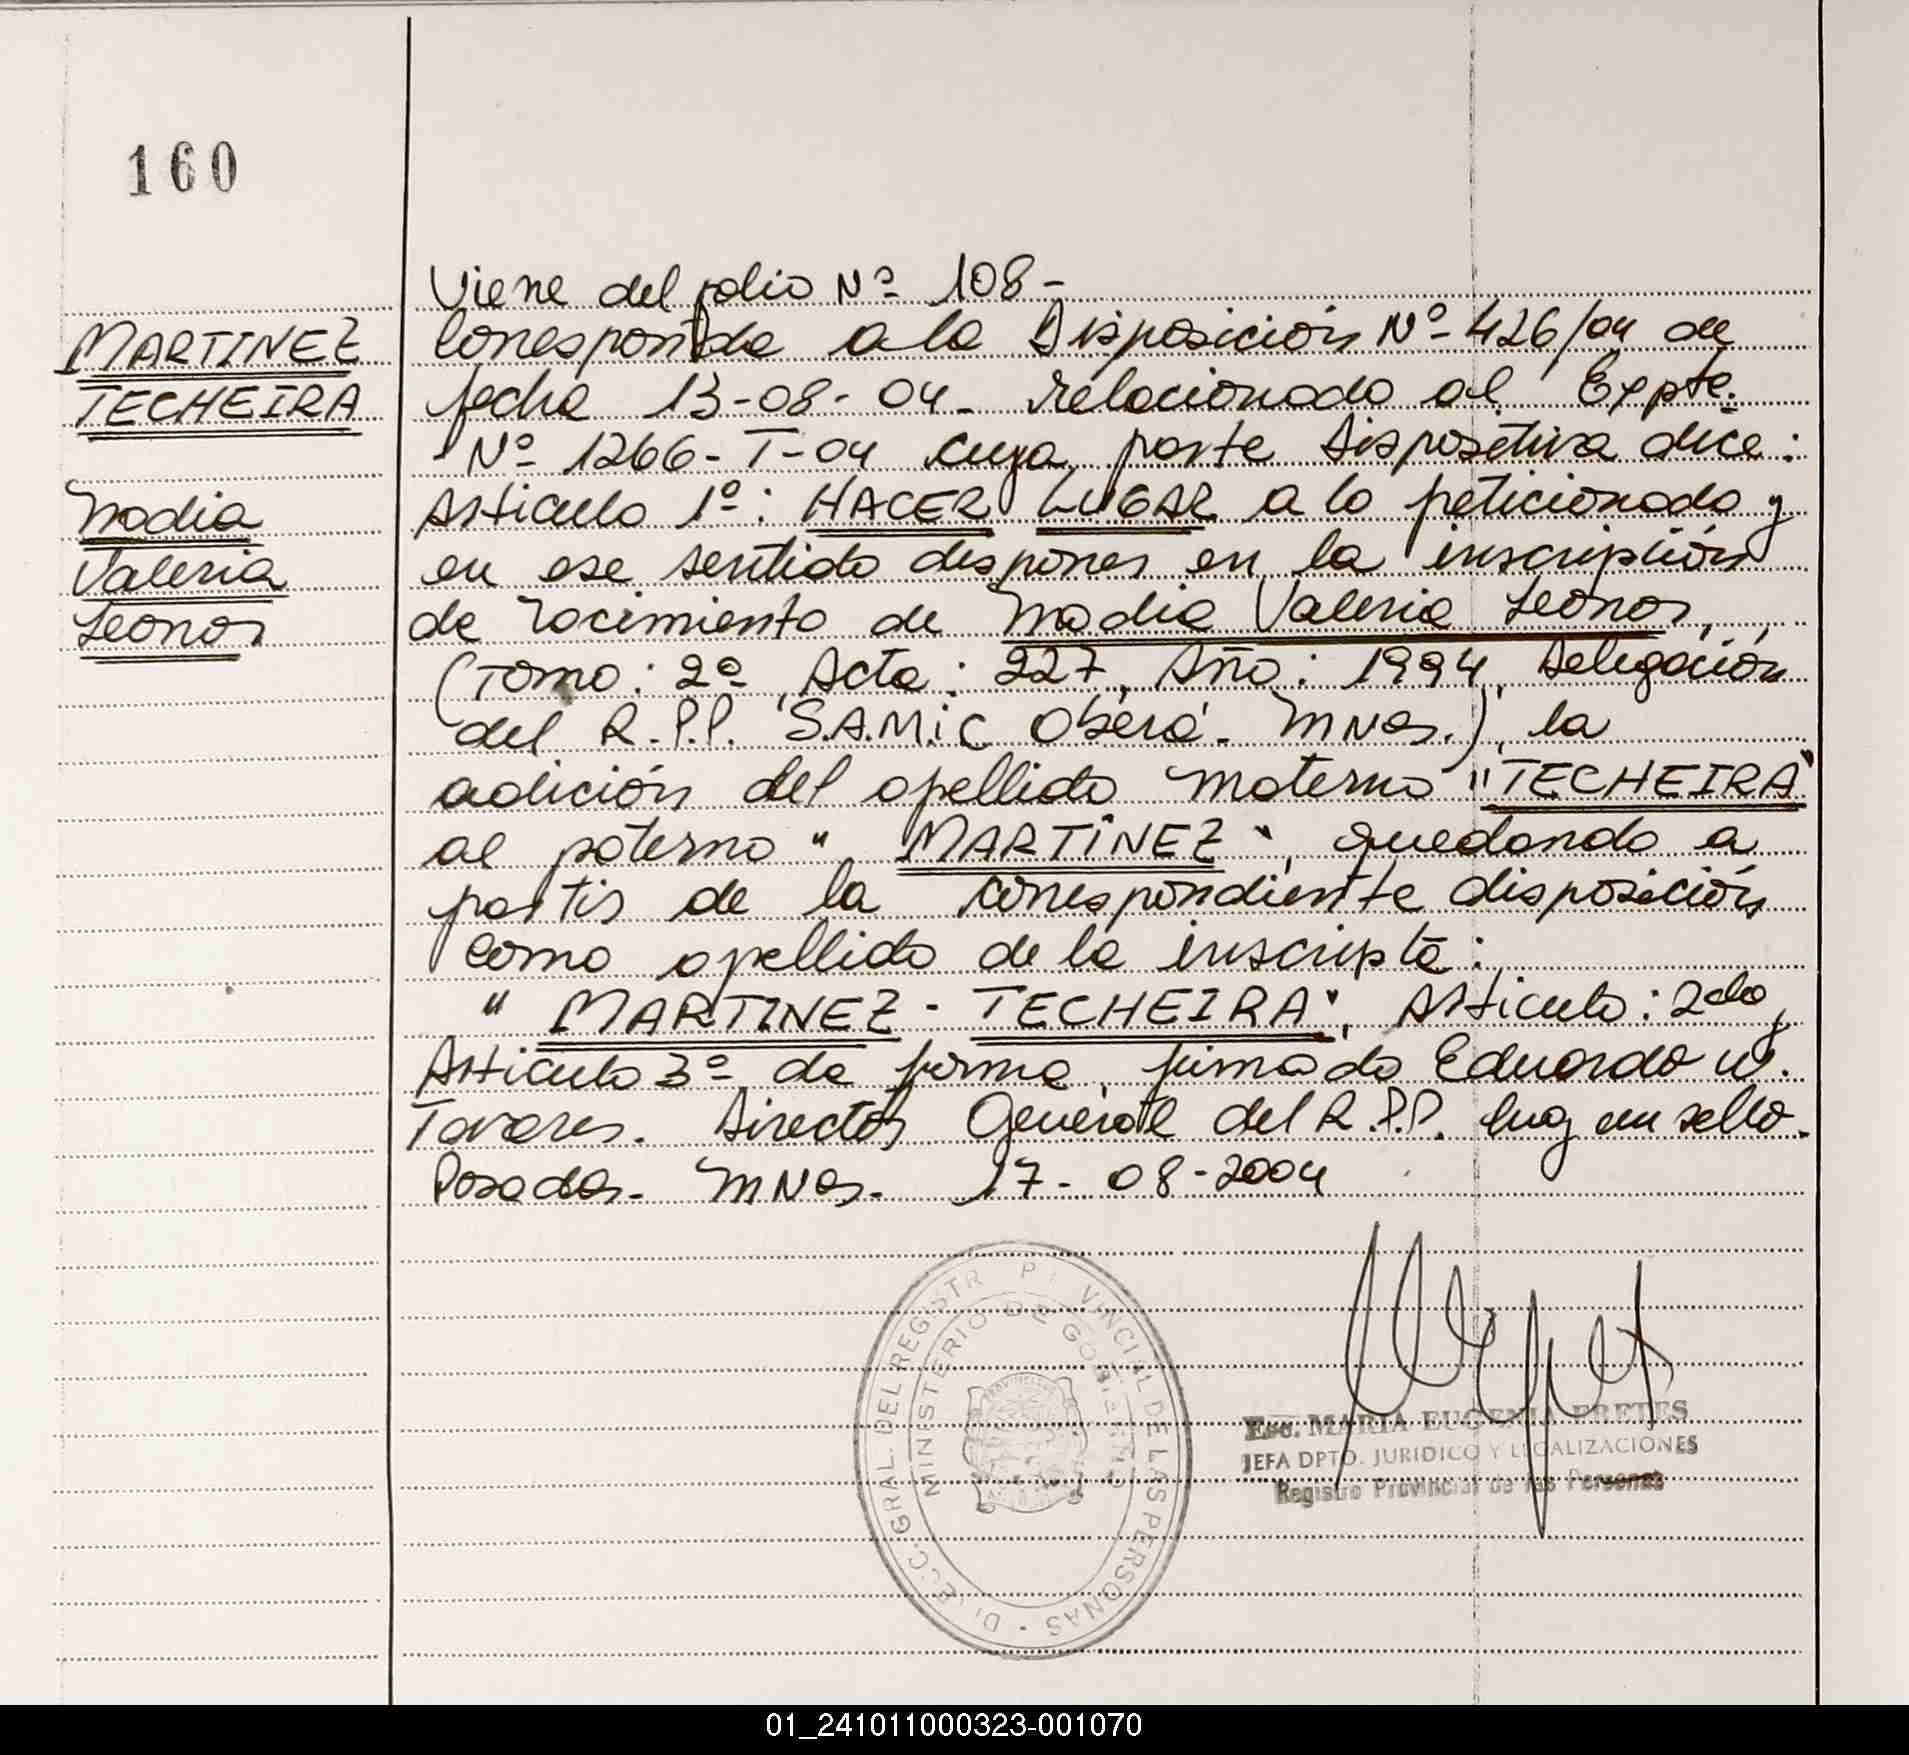 160
Viene del folio Nº 108-
MARTINEZ
TECHEIRA
Nadia
Valeria
Leonor
Corresponde a la Disposición Nº 426/04 de
fecha 13-08-04- relacionado al Expte.
Nº 1266-T-04 cuya parte dispositiva dice:
Articulo 1º: HACER LUGAR a lo peticionado y
en ese sentido disponer en la inscripción
de nacimiento de Nadia Valeria Leonor,
(Tomo: 2º, Acta: 227, Año: 1994, Delegación
del R.P.P. S.A.M.I.C Oberá- MNes.), la
adición del apellido materno "TECHEIRA"
al paterno "MARTÍNEZ", quedando a
partir de la correspondiente disposición
como apellido de la inscripta:
"MARTINEZ - TECHEIRA", Articulo: 2do y
Articulo 3º de forma, firmado Eduardo W.
Tavares. Director General del R.P.P. hay un sello.
Posadas- MNes- 17-08-2004
DIRECC. GRAL. DEL REGISTRO PROVINCIAL DE LAS PERSONAS
MINISTERIO DE GOBIERNO
Esc. MARIA EUGENIA PRETES
JEFA DPTO. JURIDICO Y LEGALIZACIONES
Registro Provincial de las Personas
01_241011000323-001070